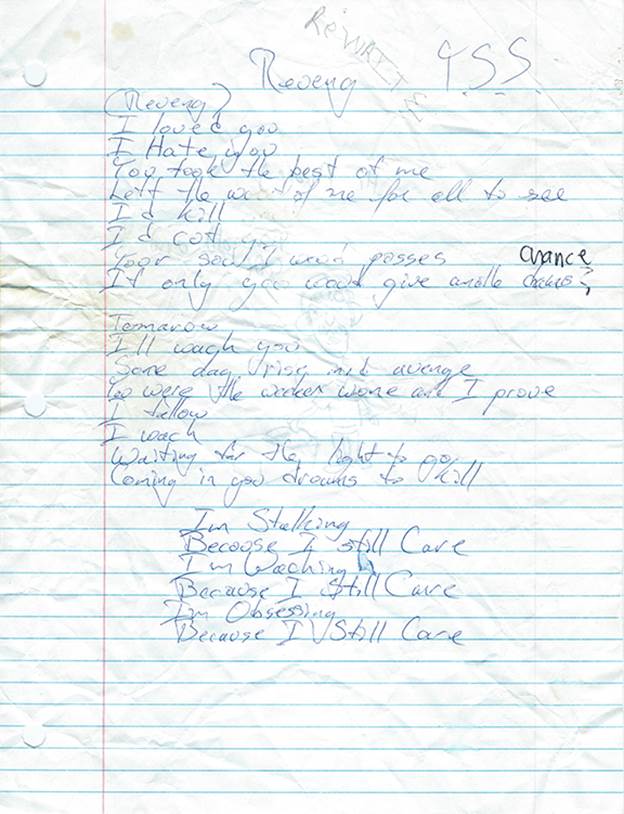 ReWRITE
YSS
Reveng
(Reveng)
I loved you
I Hate you
You took the best of me
Left the worst of me for all to see
I'd kill
I'd cut you
Your soul I passes
If only you would give anothe chance
Tomarow
I'll wach you
Some day rise and avenge
You were the weaker wone and I prove
I follow
I wach
Waiting for the light to go
Coming in you dreams to kill
Im Stalking
Becouse I still Care
I'm Waching
Because I Still Care
I'm Obsessing
Because I Still Care